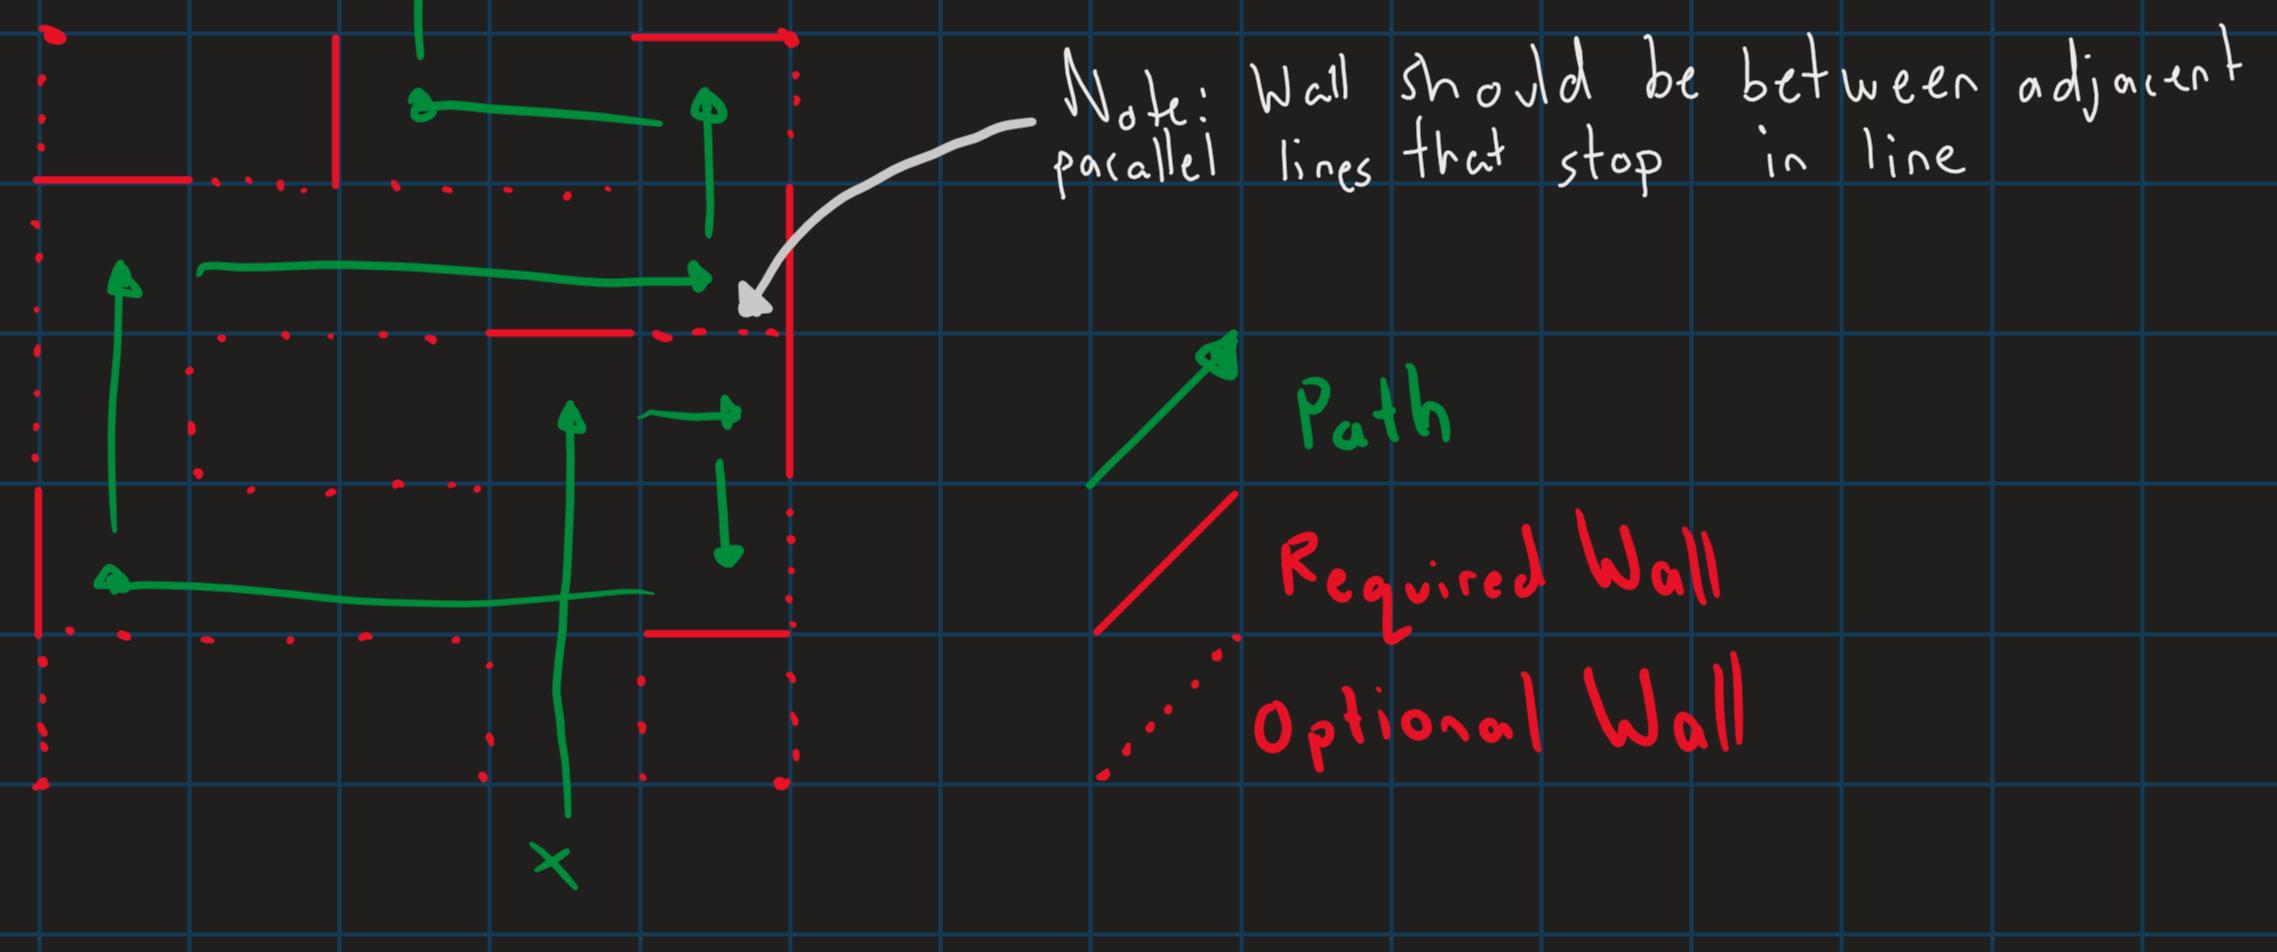 Note: Wall should be between adjacent
parallel lines that stop in line
Path
Required Wall
Optional Wall
X